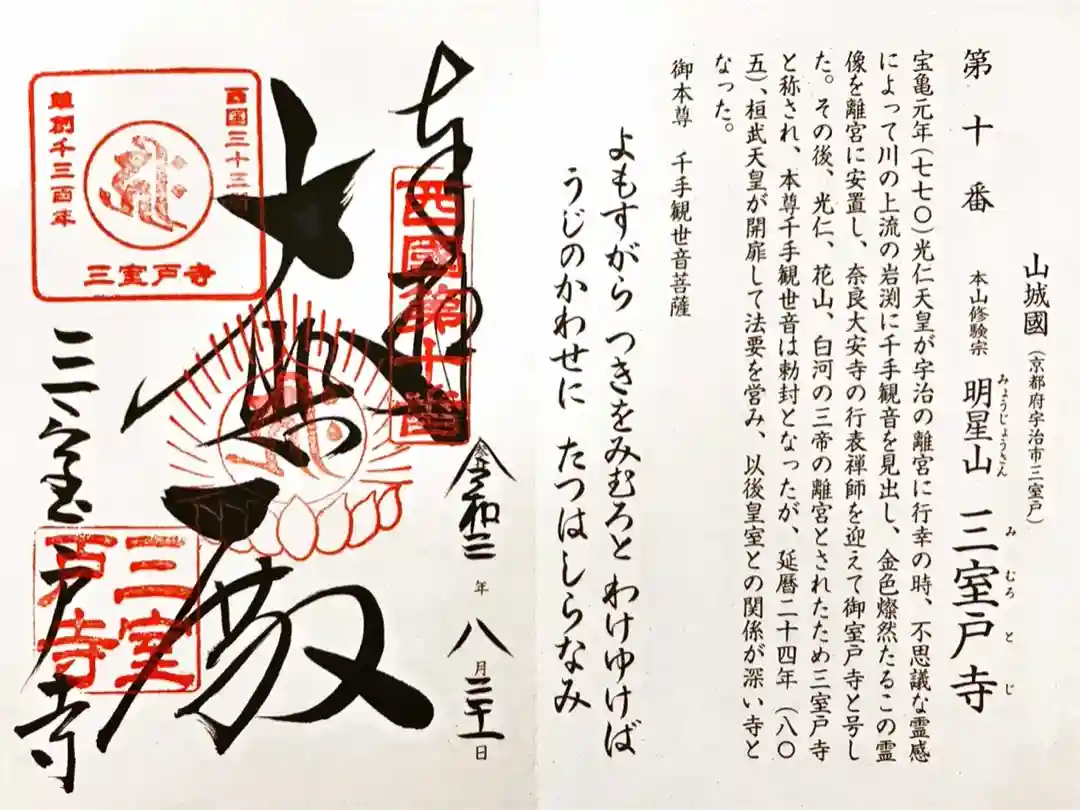 山城國（京都府宇治市三室戸）
第十番 本山修験宗 明星山 三室戸寺
みょうじょうさん みむろとじ
宝亀元年（七七〇）光仁天皇が宇治の離宮に行幸の時、不思議な霊感
によって川の上流の岩渕に千手観音を見出し、金色燦然たるこの霊
像を離宮に安置し、奈良大安寺の行表禅師を迎えて御室戸寺と号し
た。その後、光仁、花山、白河の三帝の離宮とされたため三室戸寺
と称され、本尊千手観世音は勅封となったが、延暦二十四年（八〇
五）、桓武天皇が開扉して法要を営み、以後皇室との関係が深い寺と
なった。
御本尊 千手観世音菩薩
よもすがら つきをみむろと わけゆけば
うじのかわせに たつはしらなみ
奉拝
西國第十番
令和二年八月日
大悲殿
西国三十三所
草創千三百年
三室戸寺
三室戸寺
三室戸寺